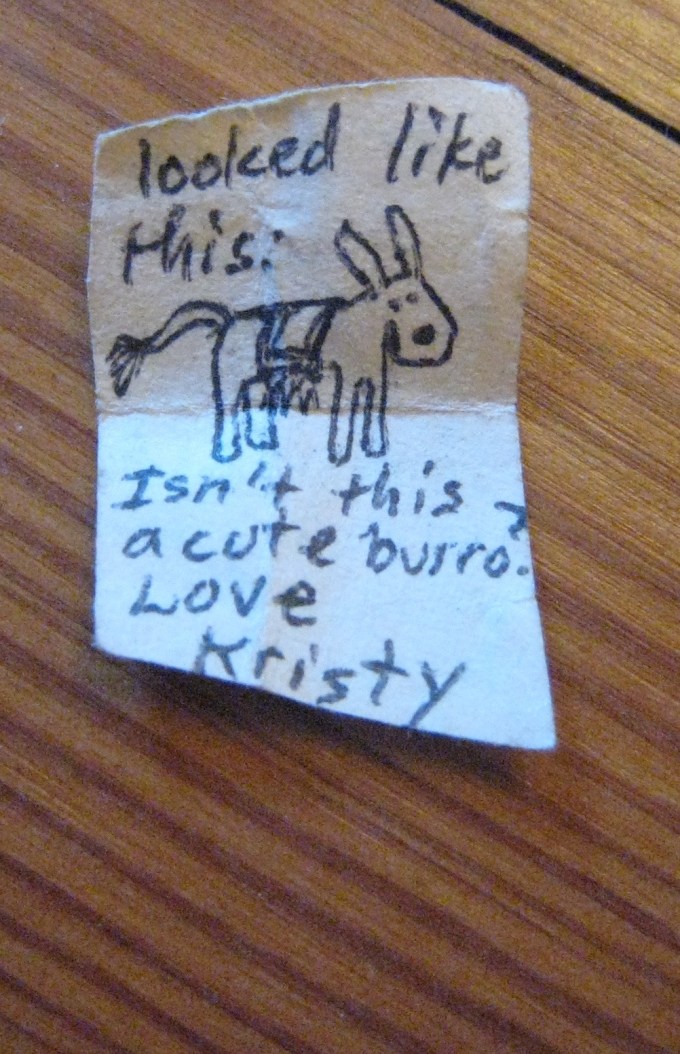 looked like
this:
Isn't this
a cute burro?
Love
Kristy